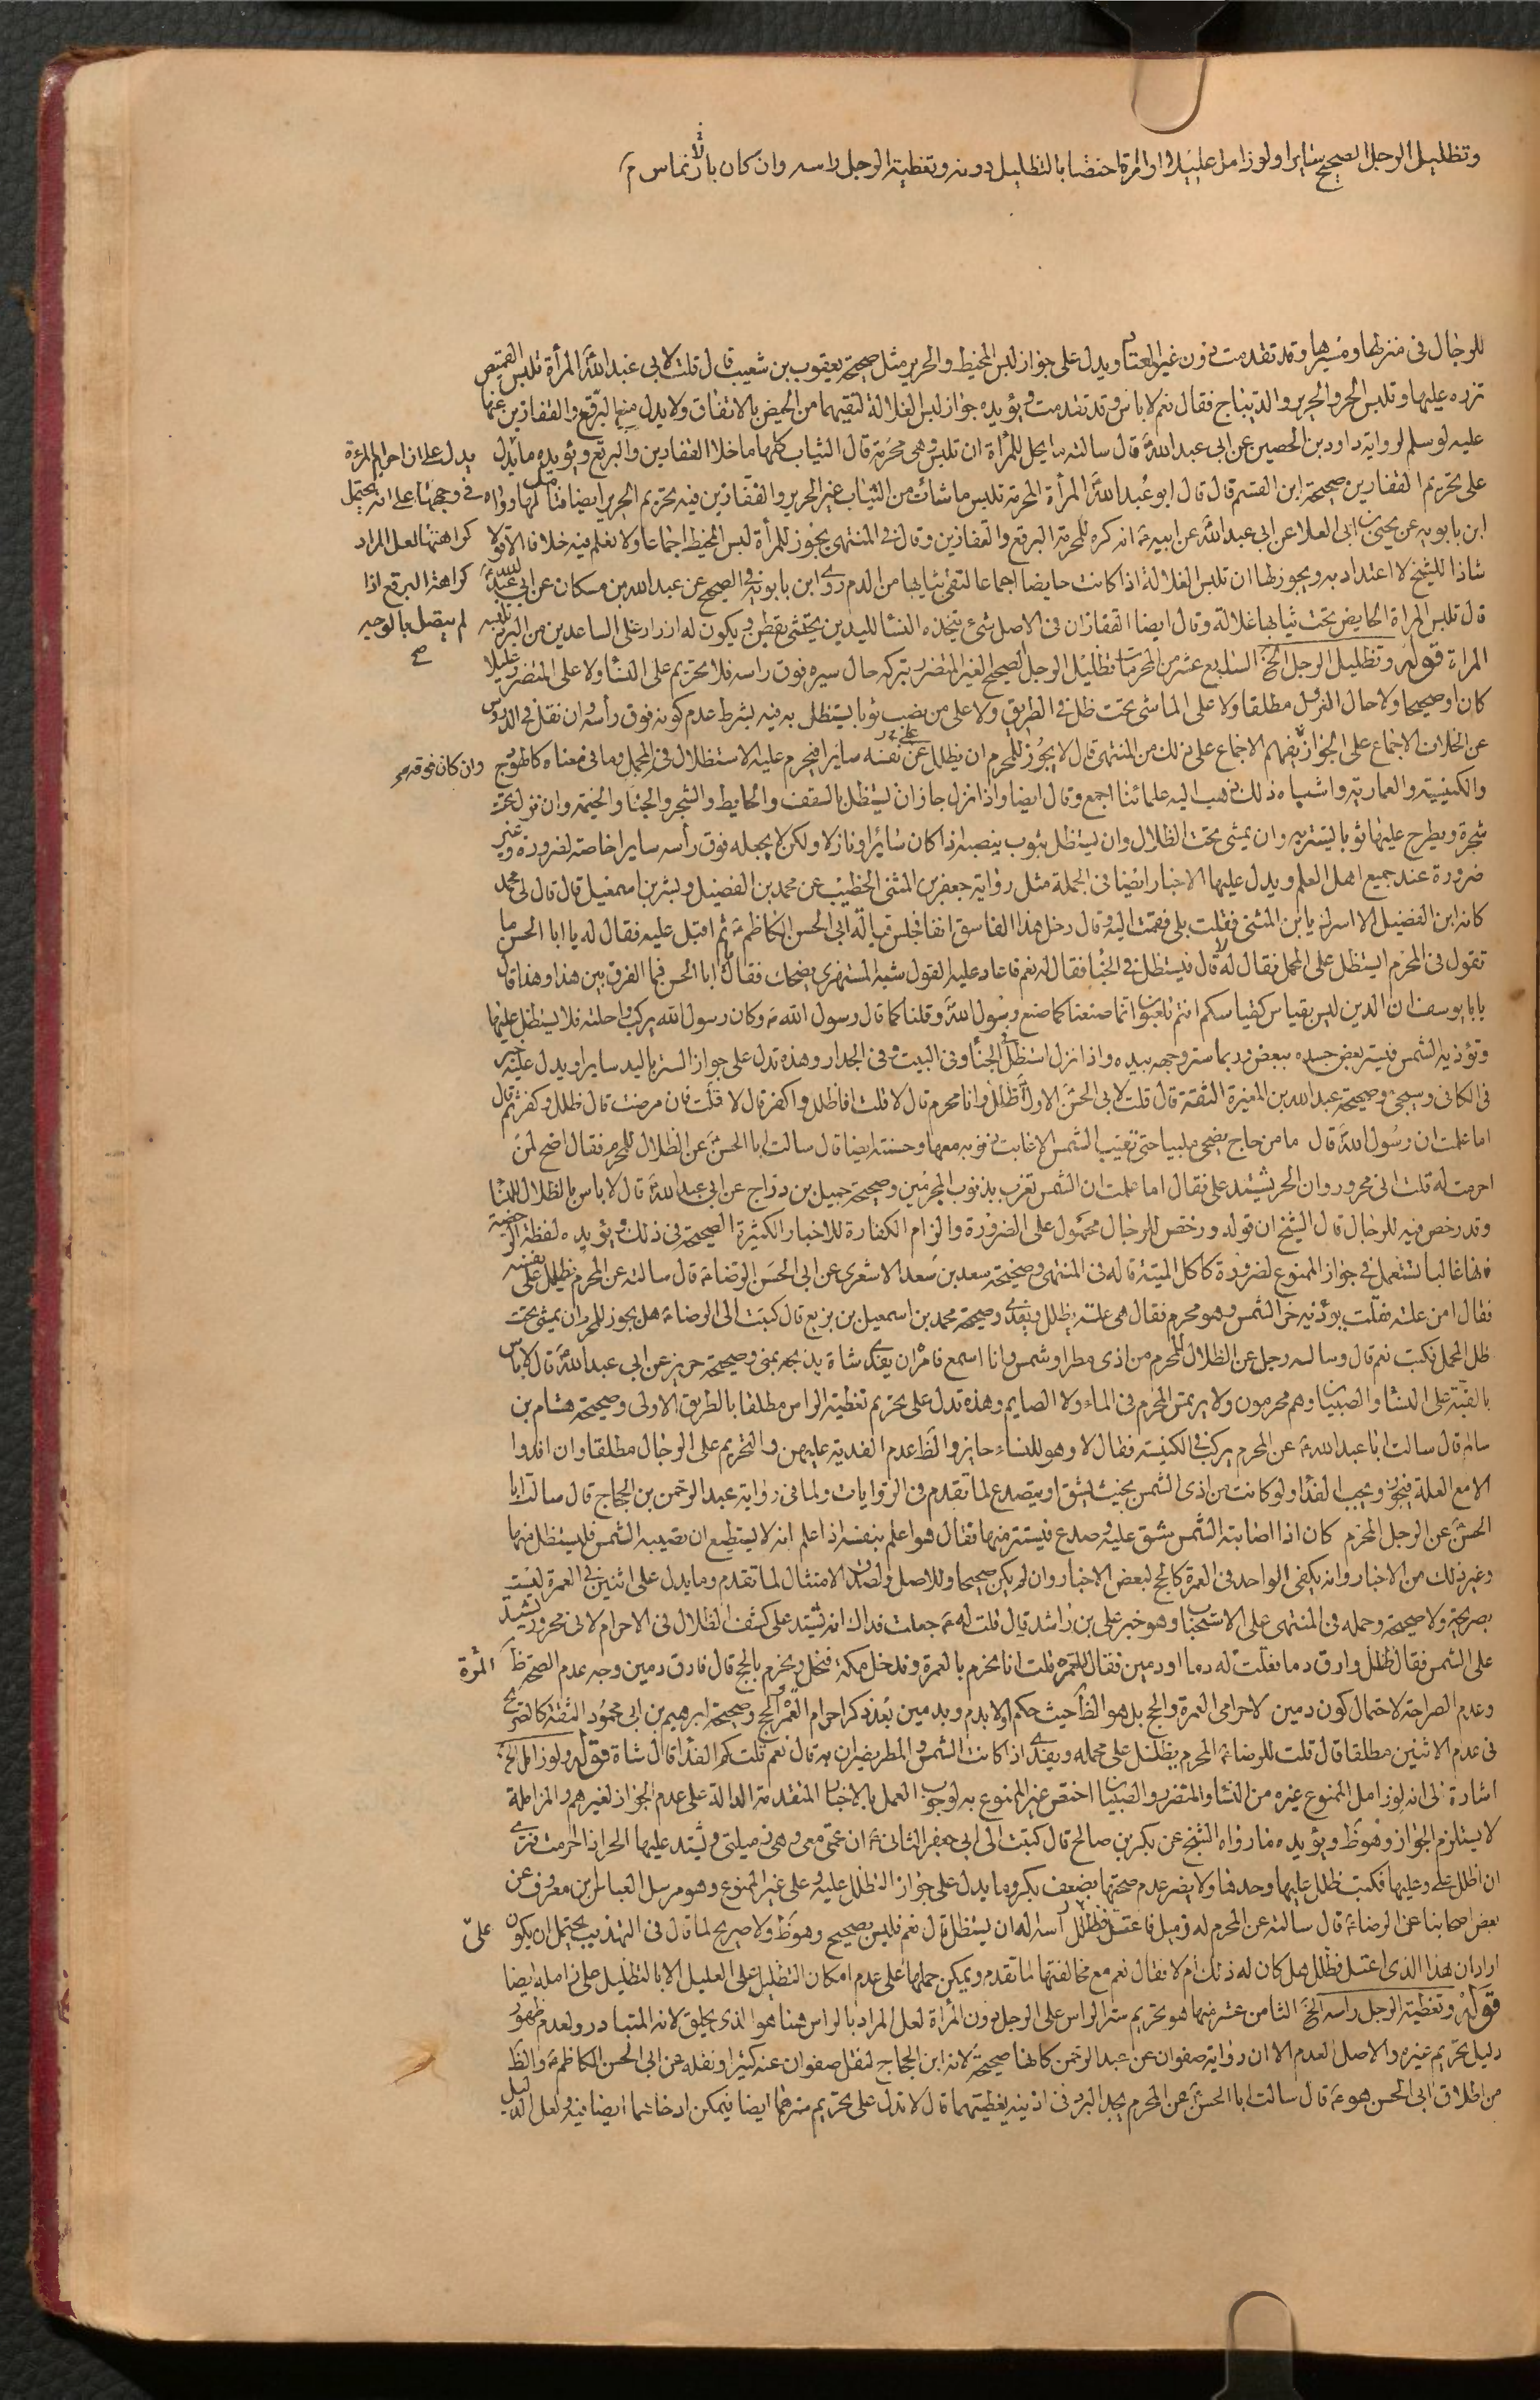 وتظليل الرجل الصحيح سايرا ولو زامل عليلا او امرأة اختصا بالتظليل دونه وتغطية الرجل راسه وان كان بالارتماس
للرجال في منزلها ومسيرها وقد تقدمت دون غير المعتاد ويدل على جواز لبس المخيط والحرير مثل صحيحة يعقوب بن شعيب قال قلت لابي عبد الله المرأة تلبس القميص
تزره عليها وتلبس الخز والحرير والديباج فقال نعم لا باس وقد تقدمت ويؤيده جواز لبس الغلالة لتقيهما من الحيض بالاتفاق ولا يدل منع البرقع والقفازين عنها
عليه لو سلم لرواية داود بن الحصين عن ابي عبد الله قال سالته ما يحل للمرأة ان تلبس وهي محرمة قال الثياب كلها ما خلا القفازين والبرقع ويؤيده ما يدل
على تحريم القفازين صحيحة ابن القسم قال قال ابو عبد الله المرأة المحرمة تلبس ما شاءت من الثياب غير الحرير والقفازين فيه تحريم الحرير ايضا
ابن بابويه عن يحيى بن ابي العلا عن ابي عبد الله عن ابيه انه كره للمحرمة البرقع والقفازين وقال في المنتهى يجوز للمرأة لبس المخيط اجماعا ولا نعلم فيه خلافا الا قولا
يدل على ان احرام المرءة
في وجهها على انه يحتمل
كراهتها لعل المراد
كراهة البرقع اذا
لم يتصل بالوجه
صح
شاذا للشيخ لا اعتداد به ويجوز لها ان تلبس الغلالة اذا كانت حايضا اجماعا لتقى ثيابها من الدم روى ابن بابويه في الصحيح عن عبد الله بن مسكان عن ابي عبد الله
قال تلبس المراة الحايض تحت ثيابها غلالة وقال ايضا القفازان في الاصل شيء يتخذه النساء لليدين يحشى بقطن ويكون له ازرار على الساعدين من البرد تلبسه
المراة قوله وتظليل الرجل الخ السابع عشر من المحرمات تظليل الرجل الصحيح الغير المتضرر بتركه حال سيره فوق راسه فلا تحريم على النساء ولا على المتضرر عليلا
كان او صحيحا ولا حال النزول مطلقا ولا على الماشي تحت ظل في الطريق ولا على من نصب ثوبا يستظل به فيه بشرط عدم كونه فوق رأسه وان نقل في الدروس
عن الخلاف الاجماع على الجواز يفهم الاجماع على ذلك من المنتهى قال لا يجوز للمحرم ان يظلل على نفسه سايرا فيحرم عليه الاستظلال في المحمل وما في معناه كالهودج
وان كان فوقه
والكنيسة والعمارية واشباه ذلك ذهب اليه علمائنا اجمع وقال ايضا واذا نزل جاز ان يستظل بالسقف والحايط والشجر والخباء والخيمة وان نزل تحت
شجرة ويطرح عليها ثوبا يستتر به وان يمشي تحت الظلال وان يستظل بثوب ينصبه اذا كان سائرا ونازلا ولكن لا يجعله فوق رأسه سايرا خاصة لضرورة وغير
ضرورة عند جميع اهل العلم ويدل عليها الاخبار ايضا في الجملة مثل رواية جعفر بن المثنى الخطيب عن محمد بن الفضيل وبشر بن اسمعيل قال قال لي محمد
كانه ابن الفضيل الا اسرك يا ابن المثنى فقلت بلى فقمت اليه وقال دخل هذا الفاسق انفا فجلس قبالة ابي الحسن الكاظم ثم اقبل عليه فقال له يا ابا الحسن ما
تقول في المحرم ايستظل على المحمل فقال له لا قال فيستظل في الخباء فقال له نعم فاعاد عليه القول شبه المستهزئ يضحك فقال يا ابا الحسن فما الفرق بين هذا وهذا قال
يا با يوسف ان الدين ليس بقياس كقياسكم انتم تلعبون انا صنعنا كما صنع رسول الله وقلنا كما قال رسول الله وكان رسول الله يركب راحلته فلا يستظل عليها
وتؤذيه الشمس فيستر بعض جسده ببعض وربما ستر وجهه بيده واذا نزل استظل في الخباء وفي البيت وفي الجدار وهذه تدل على جواز الستر باليد سايرا ويدل عليه خبر
في الكافي وسيجئ وصحيحة عبد الله بن المغيرة الثقة قال قلت لابي الحسن الاول اظلل وانا محرم قال لا قلت افاظلل واكفر قال لا قلت فان مرضت قال ظلل وكفر ثم قال
اما علمت ان رسول الله قال ما من حاج يضحي ملبيا حتى تغيب الشمس الا غابت ذنوبه معها وحسنته ايضا قال سالت ابا الحسن عن الظلال للمحرم فقال اضح لمن
احرمت له قلت اني محرور وان الحر يشتد علي فقال اما علمت ان الشمس تغرب بذنوب المجرمين وصحيحة جميل بن دراج عن ابي عبد الله قال لا باس بالظلال للنساء
وقد رخص فيه للرجال قال الشيخ ان قوله ورخص للرجال محمول على الضرورة والزام الكفارة للاخبار الكثيرة الصحيحة في ذلك ويؤيده لفظة الرخصة
فانها غالبا تستعمل في جواز الممنوع لضرورة كاكل الميتة قاله في المنتهى وصحيحة سعد بن سعد الاشعري عن ابي الحسن الرضا قال سالته عن المحرم يظلل على نفسه
فقال امن علة فقلت يؤذيه حر الشمس وهو محرم فقال هي علة يظلل ويفدي وصحيحة محمد بن اسمعيل بن بزيع قال كتبت الى الرضا هل يجوز للمحرم ان يمشي تحت
ظل المحمل فكتب نعم قال وساله رجل عن الظلال للمحرم من اذى مطر او شمس وانا اسمع فامره ان يفدي شاة يذبحه بمنى وصحيحة حريز عن ابي عبد الله قال لا باس
بالقبة على النساء والصبيان وهم محرمون ولا يرتمس المحرم في الماء ولا الصايم وهذه تدل على تحريم تغطية الراس مطلقا بالطريق الاولى وصحيحة هشام بن
سالم قال سالت ابا عبد الله عن المحرم يركب في الكنيسة فقال لا وهو للنساء جايز والظ عدم الفدية عليهن والتحريم على الرجال مطلقا وان افدوا
الا مع العلة فيجوز ويجب الفداء ولو كانت من اذى الشمس بحيث يشق او يتصدع لما تقدم في الروايات ولما في رواية عبد الرحمن بن الحجاج قال سالت ابا
الحسن عن الرجل المحرم كان اذا اصابته الشمس شق عليه وصدع فيستتر منها فقال هو اعلم بنفسه اذا علم انه لا يستطيع ان تصيبه الشمس فليستظل منها
وغير ذلك من الاخبار وانه يكفي الواحد في العمرة كالحج لبعض الاخبار وان لم يكن صحيحا وللاصل ولصدق الامتثال لما تقدم وما يدل على اثنين في العمرة ليست
بصريحة ولا صحيحة وحمله في المنتهى على الاستحباب وهو خبر علي بن راشد قال قلت له جعلت فداك انه يشتد علي كشف الظلال في الاحرام لاني محرور يشتد
على الشمس فقال ظلل وارق دما فقلت له دما او دمين فقال للعمرة قلت انا نحرم بالعمرة وندخل مكة فنحل ونحرم بالحج قال فارق دمين وجه عدم الصحة ظ
المرة
وعدم الصراحة لاحتمال كون دمين لاحرامي العمرة والحج بل هو الظ حيث حكم اولا بدم وبدمين بعد ذكر احرام العمرة والحج وصحيحة ابرهيم بن ابي محمود الثقة كالصريح
في عدم الاثنين مطلقا قال قلت للرضا المحرم يظلل على محمله ويفدي اذا كانت الشمس والمطر يضران به قال نعم قلت كم الفداء قال شاة قوله ولو زامل الخ
اشارة الى انه لو زامل الممنوع غيره من النساء والمتضرر والصبيان اختص غير الممنوع به لوجوب العمل بالاخبار المتقدمة الدالة على عدم الجواز لغيرهم والمزاملة
لا يستلزم الجواز وهو ظ ويؤيده ما رواه الشيخ عن بكر بن صالح قال كتبت الى ابي جعفر الثاني ان عمتي معي وهي زميلتي ويشتد عليها الحر اذا احرمت فترى
ان اظلل علي وعليها فكتب ظلل عليها وحدها ولا يضر عدم صحتها بضعف بكر وما يدل على جواز التظلل عليه وعلى غير الممنوع وهو مرسل العباس بن معروف عن
بعض اصحابنا عن الرضا قال سالته عن المحرم له زميل فاعتل فظلل على راسه اله ان يستظل قال نعم فليس بصحيح وهو ظ ولا صريح لما قال في التهذيب يحتمل ان يكون
علىّ
اراد ان هذا الذي اعتل فظلل هل كان له ذلك ام لا فقال نعم مع مخالفتها لما تقدم ويمكن حملها على عدم امكان التظليل على العليل الا بالتظليل على زامله ايضا
قوله وتغطية الرجل راسه الخ الثامن عشر منها هو تحريم ستر الراس على الرجل دون المرأة لعل المراد بالراس هنا هو الذي يحلق لانه المتبادر ولعدم ظهور
دليل تحريم غيره والاصل العدم الا ان رواية صفوان عن عبد الرحمن كانها صحيحة لانه ابن الحجاج لنقل صفوان عنه كثيرا ونقله عن ابي الحسن الكاظم والظ
من اطلاق ابي الحسن هو قال سالت ابا الحسن عن المحرم يجد البرد في اذنيه يغطيهما قال لا تدل على تحريم سترهما ايضا فيمكن ادخالهما ايضا فيه ولعل الدليل